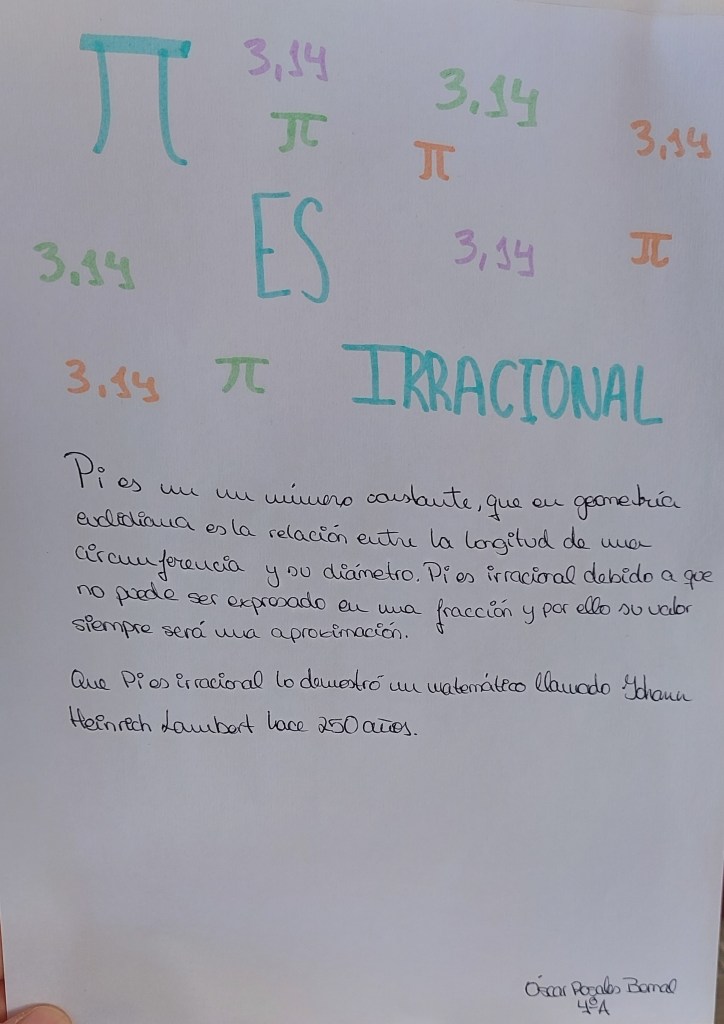 π 3,14 3,14
π π 3,14
3,14 ES 3,14 π
3,14 π IRRACIONAL
Pi es un un número constante, que en geometría
euclidiana es la relación entre la longitud de una
circunferencia y su diámetro. Pi es irracional debido a que
no puede ser expresado en una fracción y por ello su valor
siempre será una aproximación.
Que Pi es irracional lo demostró un matemático llamado Johann
Heinrich Lambert hace 250 años.
Óscar Rosales Bernal
4ºA